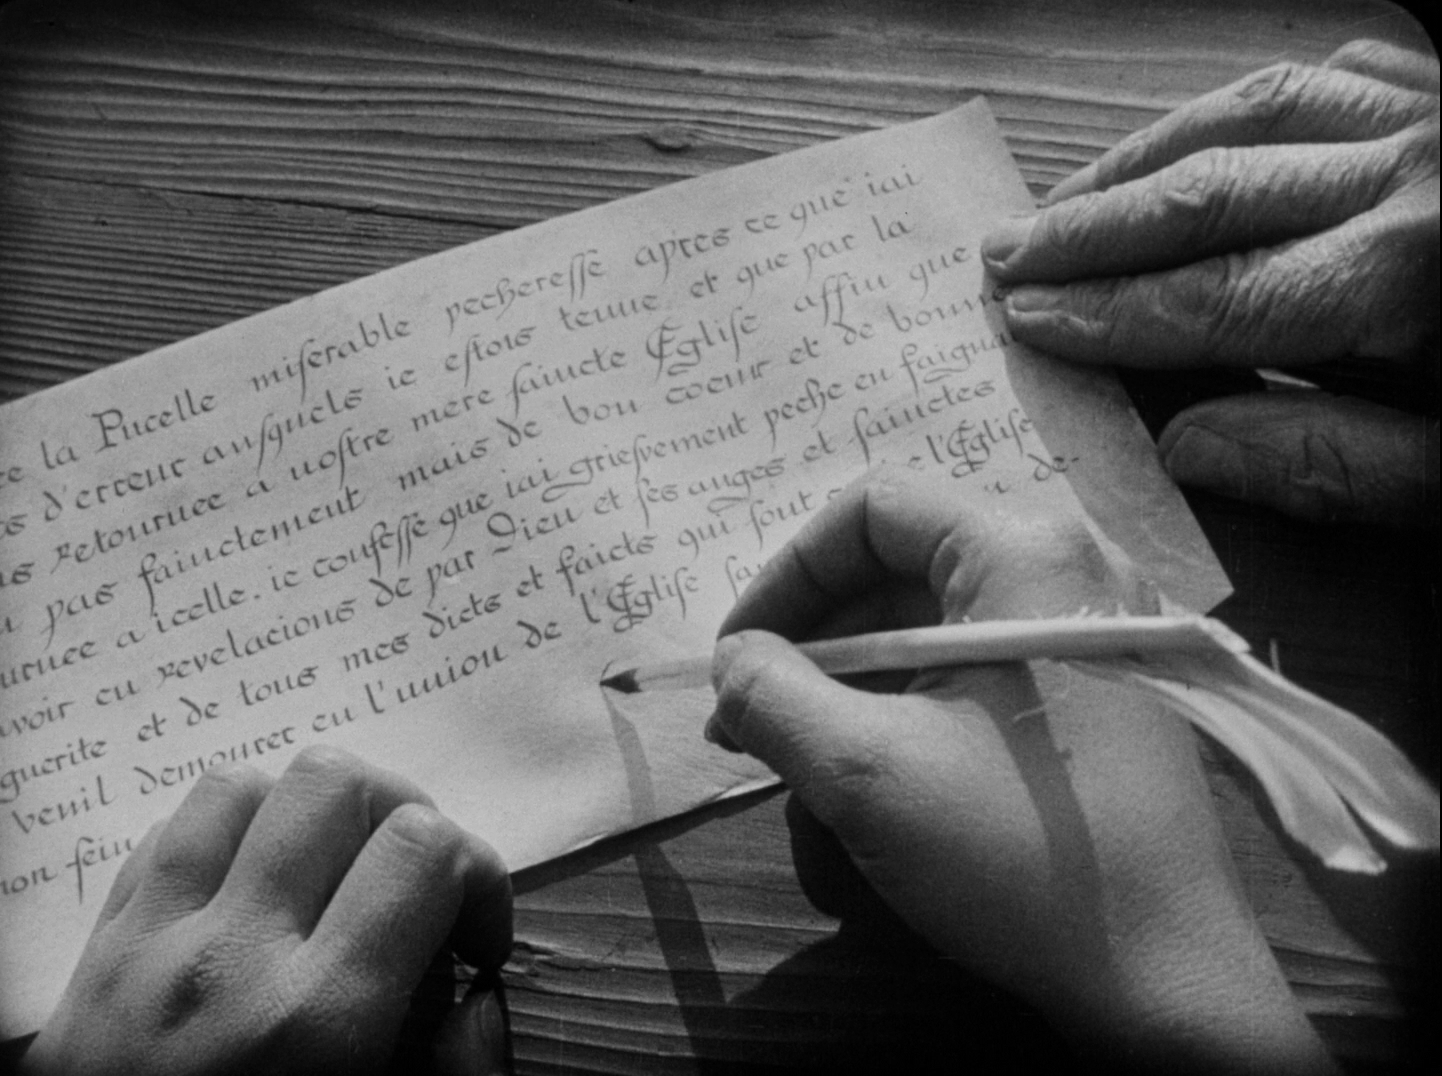 la Pucelle miſerable pechereſſe apres ce que iai
d'erreur auſquels ie eſtois tenue et que par la
retournee a noſtre mere ſaincte Egliſe affin que
pas faintement mais de bon coeur et de bonne
a icelle. ie confeſſe que iai grieſvement peche en faignant
avoir eu revelacions de par Dieu et ſes anges et ſainctes
et de tous mes dicts et faicts qui ſont l'Egliſe
veuil demourer en l'union de l'Egliſe de-
ſein